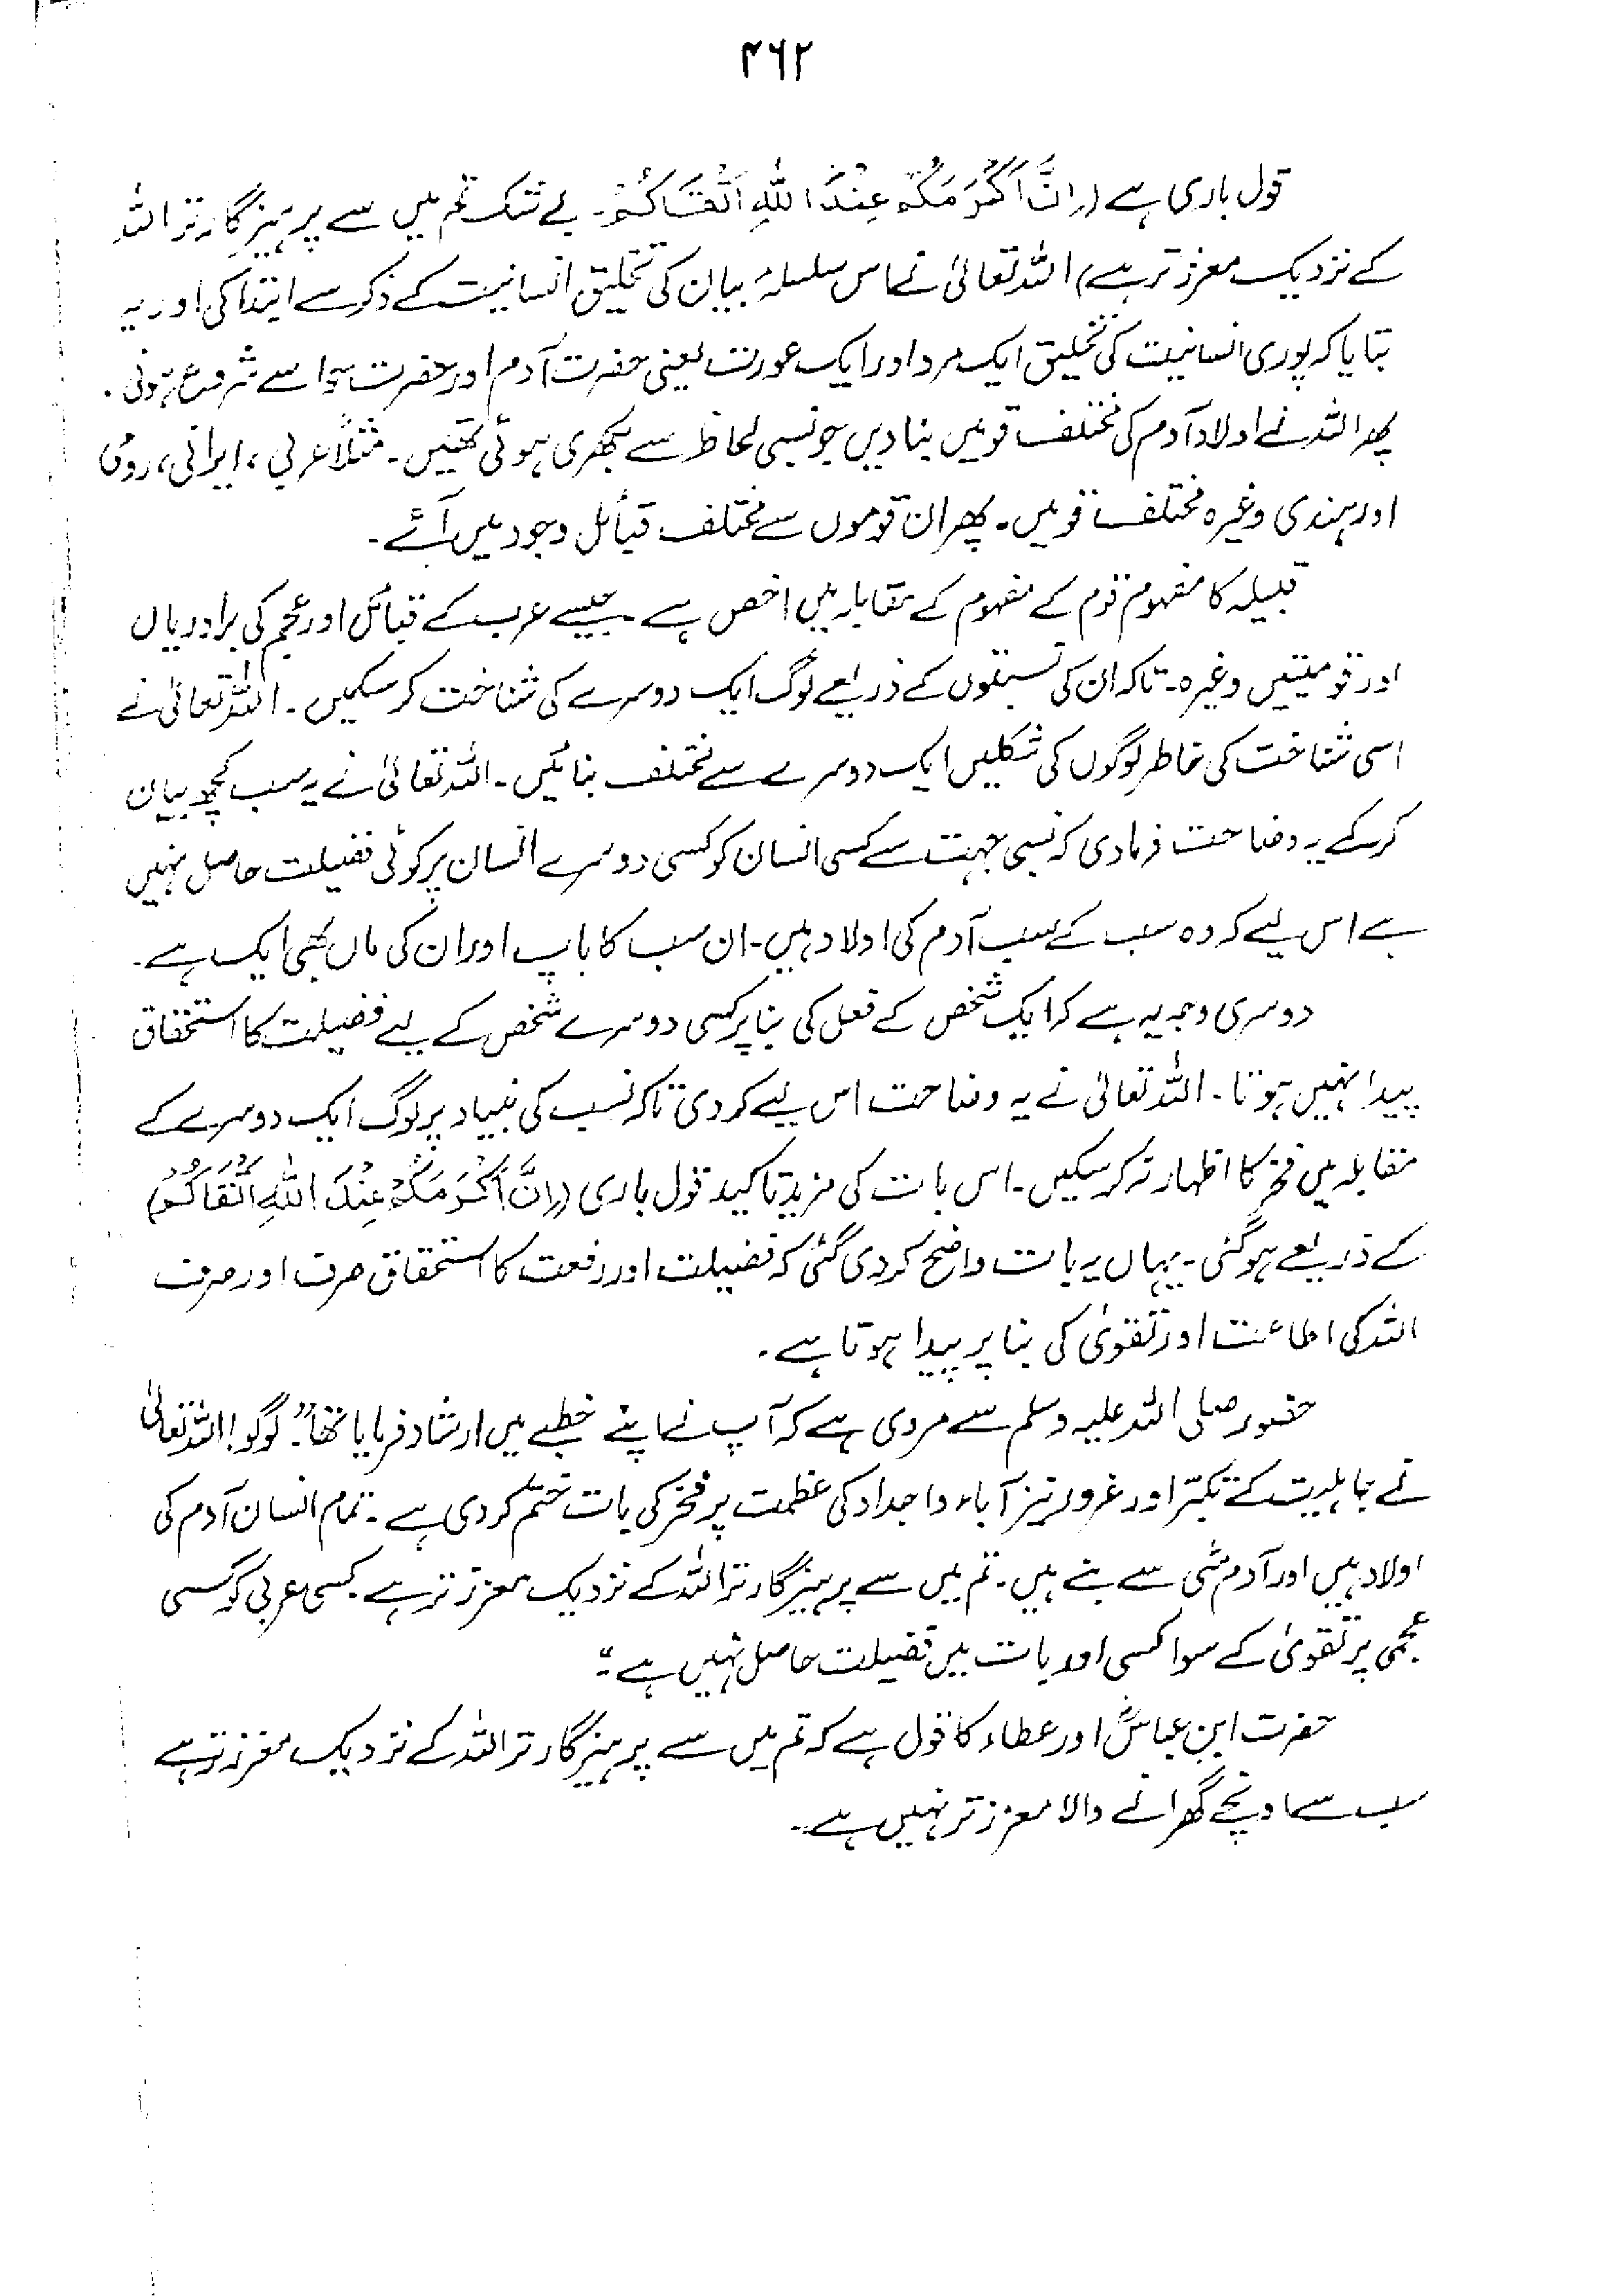 ۴۶۲
قول باری ہے (اِنَّ اَکْرَمَکُمْ عِنْدَ اللّٰہِ اَتْقَاکُمْ۔ بے شک تم میں سے پرہیزگار تر اللہ
کے نزدیک معزز تر ہے) اللہ تعالیٰ نے اس سلسلۂ بیان کی تخلیق انسانیت کے ذکر سے ابتدا کی اور یہ
بتایا کہ پوری انسانیت کی تخلیق ایک مرد اور ایک عورت یعنی حضرت آدم اور حضرت حوا سے شروع ہوئی۔
پھر اللہ نے اولاد آدم کی مختلف قومیں بنا دیں جو نسبی لحاظ سے بکھری ہوئی تھیں۔ مثلاً عربی، ایرانی، رومی
اور ہندی وغیرہ مختلف قومیں۔ پھر ان قوموں سے مختلف قبائل وجود میں آئے۔
قبیلہ کا مفہوم قوم کے مفہوم کے مقابلہ میں اخص ہے۔ جیسے عرب کے قبائل اور عجم کی برادریاں
اور قومیتیں وغیرہ۔ تاکہ ان کی نسبتوں کے ذریعے لوگ ایک دوسرے کی شناخت کر سکیں۔ اللہ تعالیٰ نے
اسی شناخت کی خاطر لوگوں کی شکلیں ایک دوسرے سے مختلف بنائیں۔ اللہ تعالیٰ نے یہ سب کچھ بیان
کرکے یہ وضاحت فرمادی کہ نسبی جہت سے کسی انسان کو کسی دوسرے انسان پر کوئی فضیلت حاصل نہیں
ہے اس لیے کہ وہ سب کے سب آدم کی اولاد ہیں۔ ان سب کا باپ اور ان کی ماں بھی ایک ہے۔
دوسری وجہ یہ ہے کہ ایک شخص کے فعل کی بنا پر کسی دوسرے شخص کے لیے فضیلت کا استحقاق
پیدا نہیں ہوتا۔ اللہ تعالیٰ نے یہ وضاحت اس لیے کردی تاکہ نسب کی بنیاد پر لوگ ایک دوسرے کے
مقابلہ میں فخر کا اظہار نہ کرسکیں۔ اس بات کی مزید تاکید قول باری (اِنَّ اَکْرَمَکُمْ عِنْدَ اللّٰہِ اَتْقَاکُمْ)
کے ذریعے ہوگئی۔ یہاں یہ بات واضح کردی گئی کہ فضیلت اور رفعت کا استحقاق صرف اور صرف
اللہ کی اطاعت اور تقویٰ کی بنا پر پیدا ہوتا ہے۔
حضور صلی اللہ علیہ وسلم سے مروی ہے کہ آپ نے اپنے خطبے میں ارشاد فرمایا تھا "لوگو! اللہ تعالیٰ
نے جاہلیت کے تکبّر اور غرور نیز آباء و اجداد کی عظمت پر فخر کی بات ختم کردی ہے۔ تمام انسان آدم کی
اولاد ہیں اور آدم مٹی سے بنے ہیں۔ تم میں سے پرہیزگار تر اللہ کے نزدیک معزز تر ہے۔ کسی عربی کو کسی
عجمی پر تقویٰ کے سوا کسی اور بات میں فضیلت حاصل نہیں ہے"۔
حضرت ابن عباسؓ اور عطاء کا قول ہے کہ تم میں سے پرہیزگار تر اللہ کے نزدیک معزز تر ہے
سب سے اونچے گھرانے والا معزز تر نہیں ہے۔